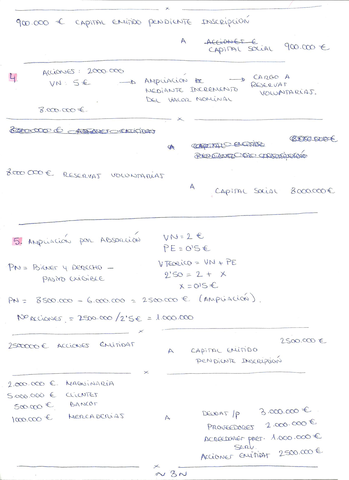 900.000 € CAPITAL EMITIDO PENDIENTE INSCRIPCIÓN
A ACCIONES E
CAPITAL SOCIAL 900.000 €
4 ACCIONES: 2000.000
VN: 5 €
8.000.000 €
→ AMPLIACIÓN DE MEDIANTE INCREMENTO DEL VALOR NOMINAL
→ CARGO A RESERVAS VOLUNTARIAS.
A
8000.000 € RESERVAS VOLUNTARIAS
A CAPITAL SOCIAL 8000.000 €
5 AMPLIACIÓN POR ABSORCIÓN
VN = 2 €
PE = 0'5 €
PN = BIENES Y DERECHO -
PASIVO EXIGIBLE
VTEÓRICO = VN + PE
2'50 = 2 + X
X = 0'5 €
PN = 8500.000 - 6.000.000 = 2500.000 € (AMPLIACIÓN).
Nº ACCIONES = 2500.000 / 2'5 € = 1.000.000
2500000 € ACCIONES EMITIDAS
A CAPITAL EMITIDO PENDIENTE INSCRIPCIÓN 2500.000 €
2.000.000 € MAQUINARIA
5000.000 € CLIENTES
500.000 € BANCOS
1000.000 € MERCADERIAS
A DEUDAS l/p 3.000.000 €
PROVEEDORES 2.000.000 €
ACREEDORES PREST. SERV 1.000.000 €
ACCIONES EMITIDAS 2500.000 €
~ 3 ~